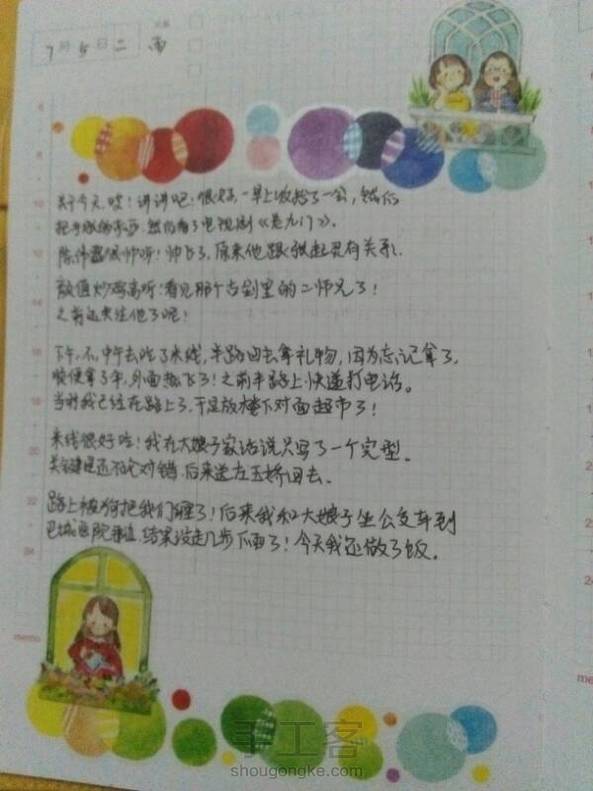 7月5日二 雨
关于今天哇！讲讲吧！很好，一早上收拾了一会，然后
把手账的东西，然后看了电视剧《老九门》。
陈伟霆很帅呀！帅飞了，原来他跟张起灵有关系.
颜值炒鸡高听！看见那个古剑里的二师兄了！
之前还关注他了呢！
下午，不，中午去吃了米线，半路回去拿礼物，因为忘记拿了，
顺便拿了伞，外面热飞了！之前半路上快递打电话。
当时我已经在路上了，于是放楼下对面超市了！
米线很好吃！我在大娘子家话说只写了一个完型。
关键是还不论对错.后来送左玉娇回去.
路上被狗把我们堵了！后来我和大娘子坐公交车到
医院，结果没走几步下雨了！今天我还做了饭。
8
10
12
14
16
18
20
22
24
memo
24
me
手工客
shougongke.com